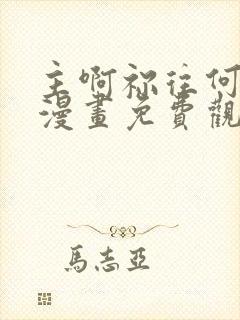 主啊祢往何
漫畫免費觀
馬志亞